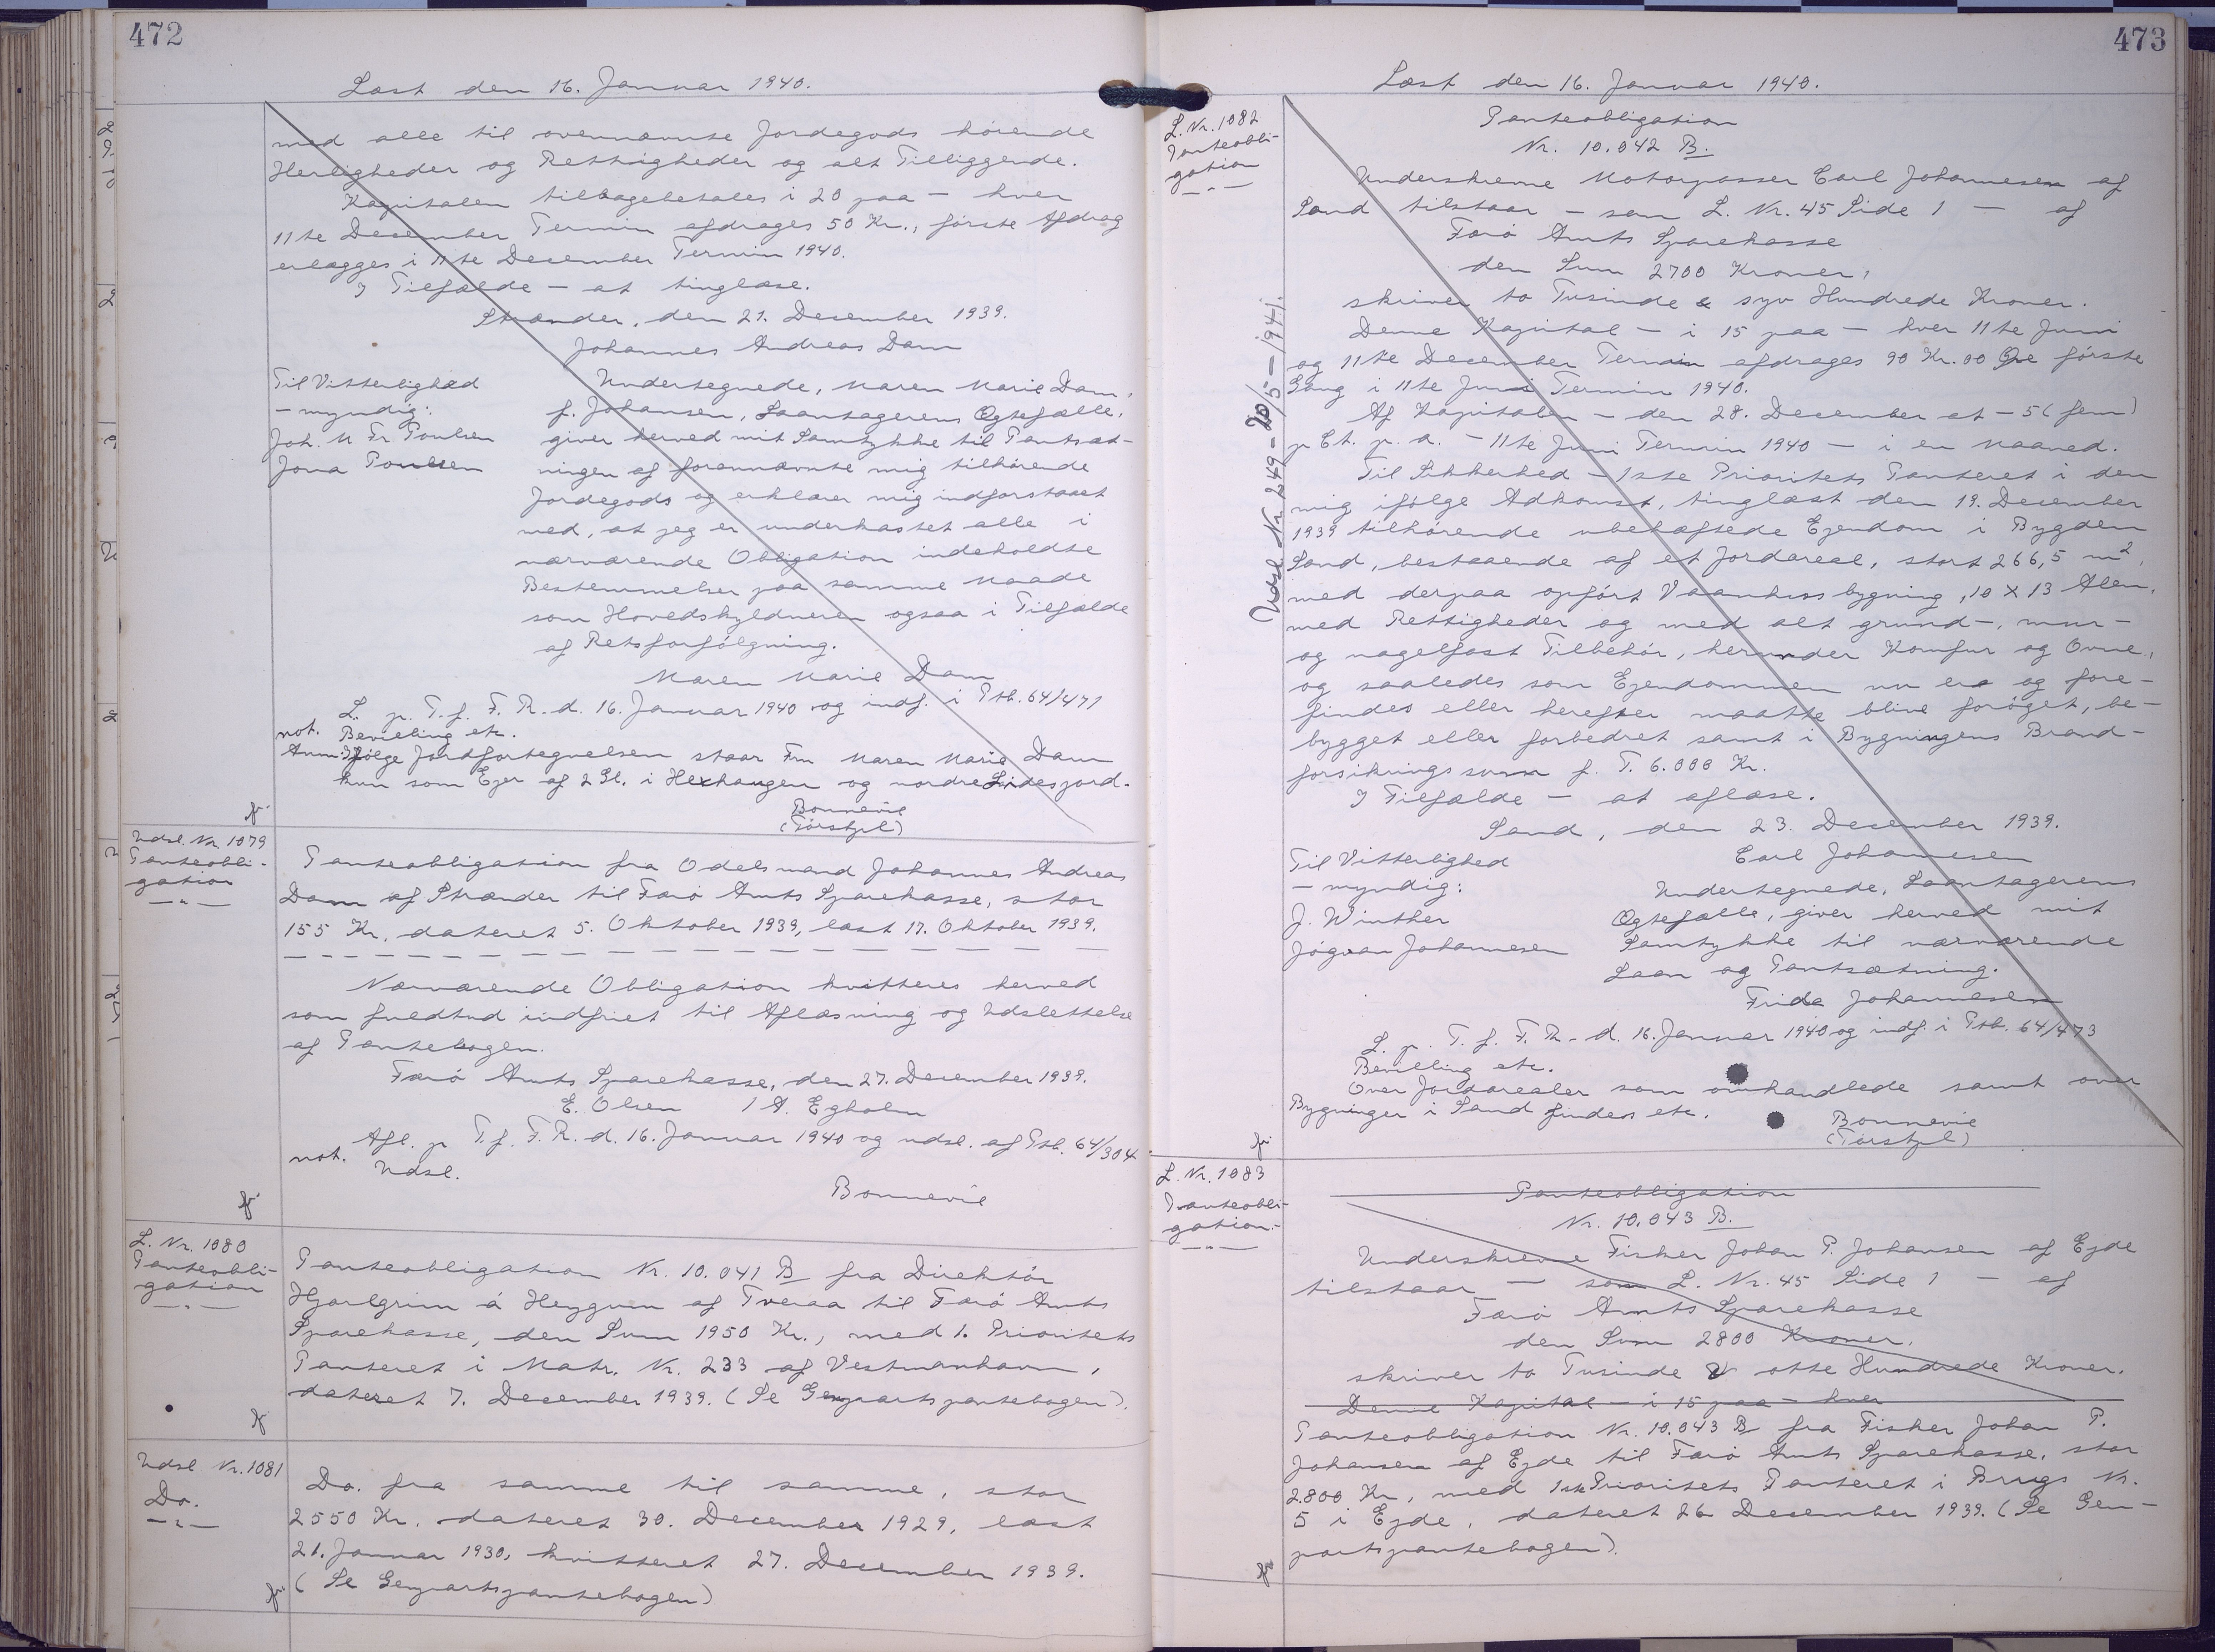 472
Læst den 16. Januar 1940.
med alle til ovennævnte Jordegods hörende
Herligheder og Rettigheder og alt Tilliggende.
Kapitalen tilbagebetales i 20 paa — hver
11te December Termin afdrages 50 Kr., første Afdrag
erlægges i 11te December Termin 1940.
I Tilfælde — at tinglæse.
Strænder, den 21. December 1939.
Johannes Andreas Dam
Til Vitterlighed
— myndig:
Joh. M Fr Poulsen
Jona Poulsen
Undertegnede, Maren Marie Dam,
f. Johansen, Laantagerens Ægtefælle,
giver herved mit Samtykke til Pantsæt-
ningen af forannævnte mig tilhörende
Jordegods og erklærer mig indforstaaet
med, at jeg er underkastet alle i
nærværende Obligation indeholdte
Bestemmelser paa samme Maade
som Hovedskyldneren ogsaa i Tilfælde
af Retsforfölgning.
Maren Marie Dam
L. p. T. f. F. R. d. 16. Januar 1940 og indf. i Ptb. 64/471
not. Bevilling etc.
Anm: Ifölge Jordfortegnelsen staar Fru Maren Marie Dam
kun som Ejer af 2 Gl. i Hexhaugen og nordre Lidesjord.
Bonnevie
(Torstjl)
Udsl. Nr. 1079
Panteobli-
gation
Panteobligation fra Odelsmand Johannes Andreas
Dam af Strænder til Færö Amts Sparekasse, stor
155 Kr., dateret 5. Oktober 1939, læst 17. Oktober 1939.
Nærværende Obligation kvitteres herved
som fuldtud indfriet til Aflæsning og Udslettelse
af Pantebogen.
Færö Amts Sparekasse, den 27. December 1939.
E. Olsen / A. Egholm
Afl. p T. f. F. R. d. 16. Januar 1940 og udsl. af Ptb. 64/304
not. Udsl.
Bonnevie
L. Nr. 1080
Panteobli-
gation
Panteobligation Nr. 10.041 B fra Direktör
Hjarlgrim á Heygum af Tveraa til Færö Amts
Sparekasse, den Sum 1950 Kr., med 1. Prioritets
Panteret i Matr. Nr. 233 af Vestmanhavn,
dateret 7. December 1939. (Se Genpartspantebogen).
Udsl Nr. 1081
Do.
Do. fra samme til samme, stor
2550 Kr. dateret 30. December 1929, læst
21. Januar 1930, kvitteret 27. December 1939.
(Se Genpartspantebogen)
473
Læst den 16. Januar 1940.
L. Nr. 1082
Panteobli-
gation
Udsl. Nr. 249 - 20/5 - 1941.
Panteobligation
Nr. 10.042 B.
Underskrevne Motorpasser Carl Johannesen af
Sand tilstaar — som L. Nr. 45 Side 1 — af
Færö Amts Sparekasse
den Sum 2700 Kroner,
skriver to Tusinde & syv Hundrede Kroner.
Denne Kapital — i 15 paa — hver 11te Juni
og 11te December Termin afdrages 90 Kr. 00 Øre förste
Gang i 11te Juni Termin 1940.
Af Kapitalen — den 28. December at — 5 (fem)
p Ct. p. a. — 11te Juni Termin 1940 — i en Maaned.
Til Sikkerhed — 1ste Prioritets Panteret i den
mig ifölge Adkomst, tinglæst den 19. December
1939 tilhörende ubehæftede Ejendom i Bygden
Sand, bestaaende af et Jordareal, stort 266,5 m²,
med derpaa opfört Vaanhusbygning, 10 x 13 Alen,
med Rettigheder og med alt grund-, mur-
og nagelfast Tilbehör, herunder Komfur og Ovne,
og saaledes som Ejendommen nu er og fore-
findes eller herefter maatte blive foröget, be-
bygget eller forbedret samt i Bygningens Brand-
forsikringssum f. T. 6.000 Kr.
I Tilfælde — at aflæse.
Sand, den 23. December 1939.
Carl Johannesen
Til Vitterlighed
— myndig:
J. Winther
Jógvan Johannesen
Undertegnede, Laantagerens
Ægtefælle, giver herved mit
Samtykke til nærværende
Laan og Pantsætning.
Frida Johannesen
L. p. T. f. F. R. d. 16. Januar 1940 og indf. i Ptb. 64/473
Bevilling etc.
Over Jordarealer som omhandlede samt over
Bygninger i Sand findes etc.
Bonnevie
(Torstjl)
L. Nr. 1083
Panteobli-
gation.
Panteobligation
Nr. 10.043 B.
Underskrevne Fisker Johan P. Johansen af Ejde
tilstaar — som L. Nr. 45 Side 1 — af
Færö Amts Sparekasse
den Sum 2800 Kroner,
skriver to Tusinde & otte Hundrede Kroner.
Denne Kapital — i 15 paa — hver
Panteobligation Nr. 10.043 B fra Fisker Johan P.
Johansen af Ejde til Færö Amts Sparekasse, stor
2800 Kr, med 1ste Prioritets Panteret i Brugs Nr.
5 i Ejde, dateret 26 December 1939. (Se Gen-
partspantebogen).